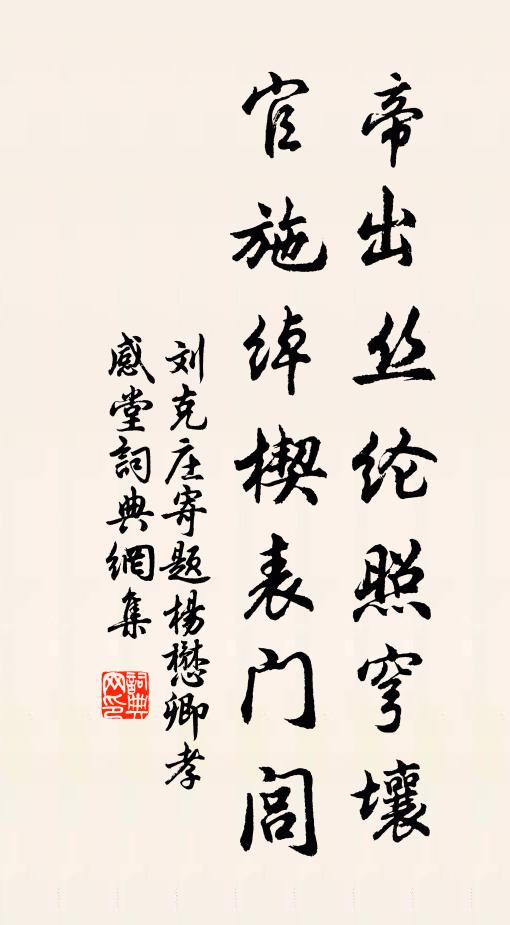 帝出丝纶照穹壤
官施绰楔表门闾
刘克庄寄题杨懋卿孝
感堂詞典網集
詞典
网印